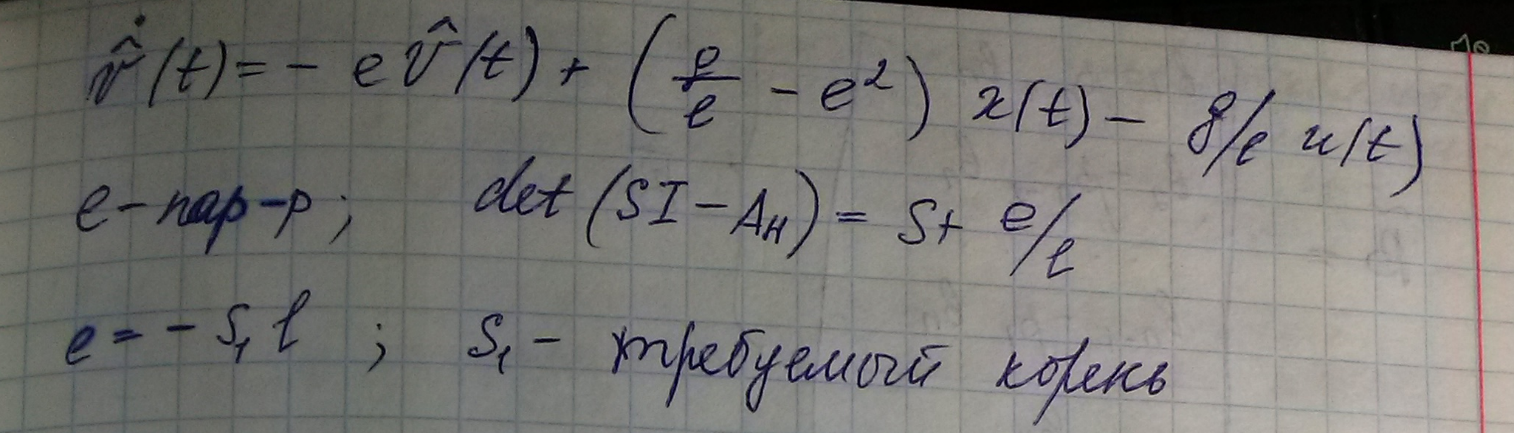 v̂̇(t) = - e v̂(t) + (e/l - e²) x(t) - g/l u(t)
e - пар-р ; det (SI - Aн) = S + e/l
e = - S₁ l ; S₁ - требуемый корень